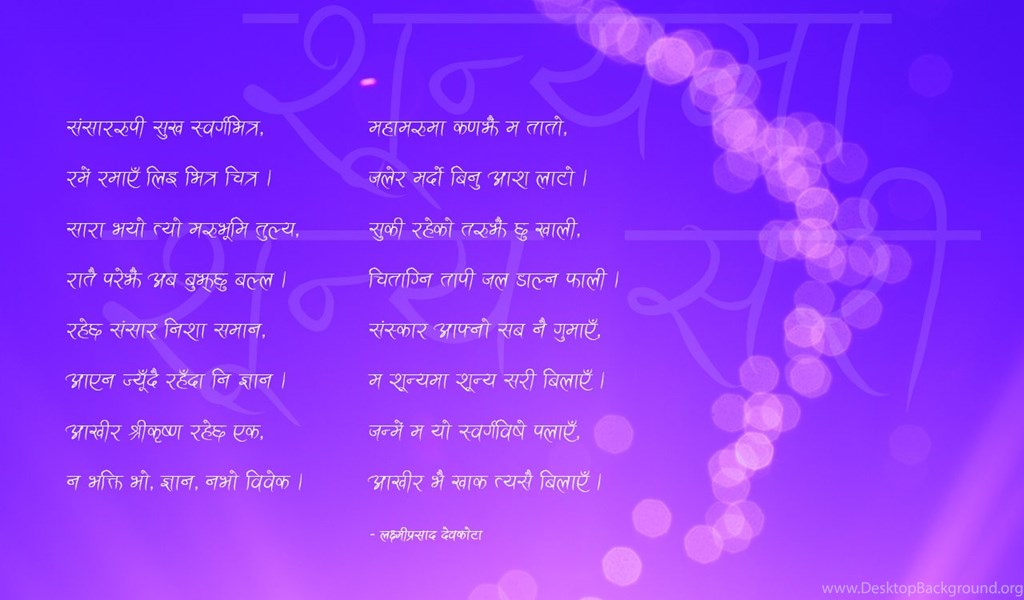 शून्यमा
शून्य सरी
संसाररुपी सुख स्वर्गभित्र,
रमें रमाएँ लिइ भित्र चित्र ।
सारा भयो त्यो मरुभूमि तुल्य,
रातै परेझैं अब बुझ्छु बल्ल ।
रहेछ संसार निशा समान,
आएन ज्यूँदै रहँदा नि ज्ञान ।
आखीर श्रीकृष्ण रहेछ एक,
न भक्ति भो, ज्ञान, नभो विवेक ।
महामरुमा कणझैं म तातो,
जलेर मर्दो बिनु आश लाटो ।
सुकी रहेको तरुझैं छु खाली,
चिताग्नि तापी जल डाल्न फाली ।
संस्कार आफ्नो सब नै गुमाएँ,
म शून्यमा शून्य सरी बिलाएँ ।
जन्में म यो स्वर्गविषे पलाएँ,
आखीर भै खाक त्यसै बिलाएँ ।
- लक्ष्मीप्रसाद देवकोटा
www.DesktopBackground.org